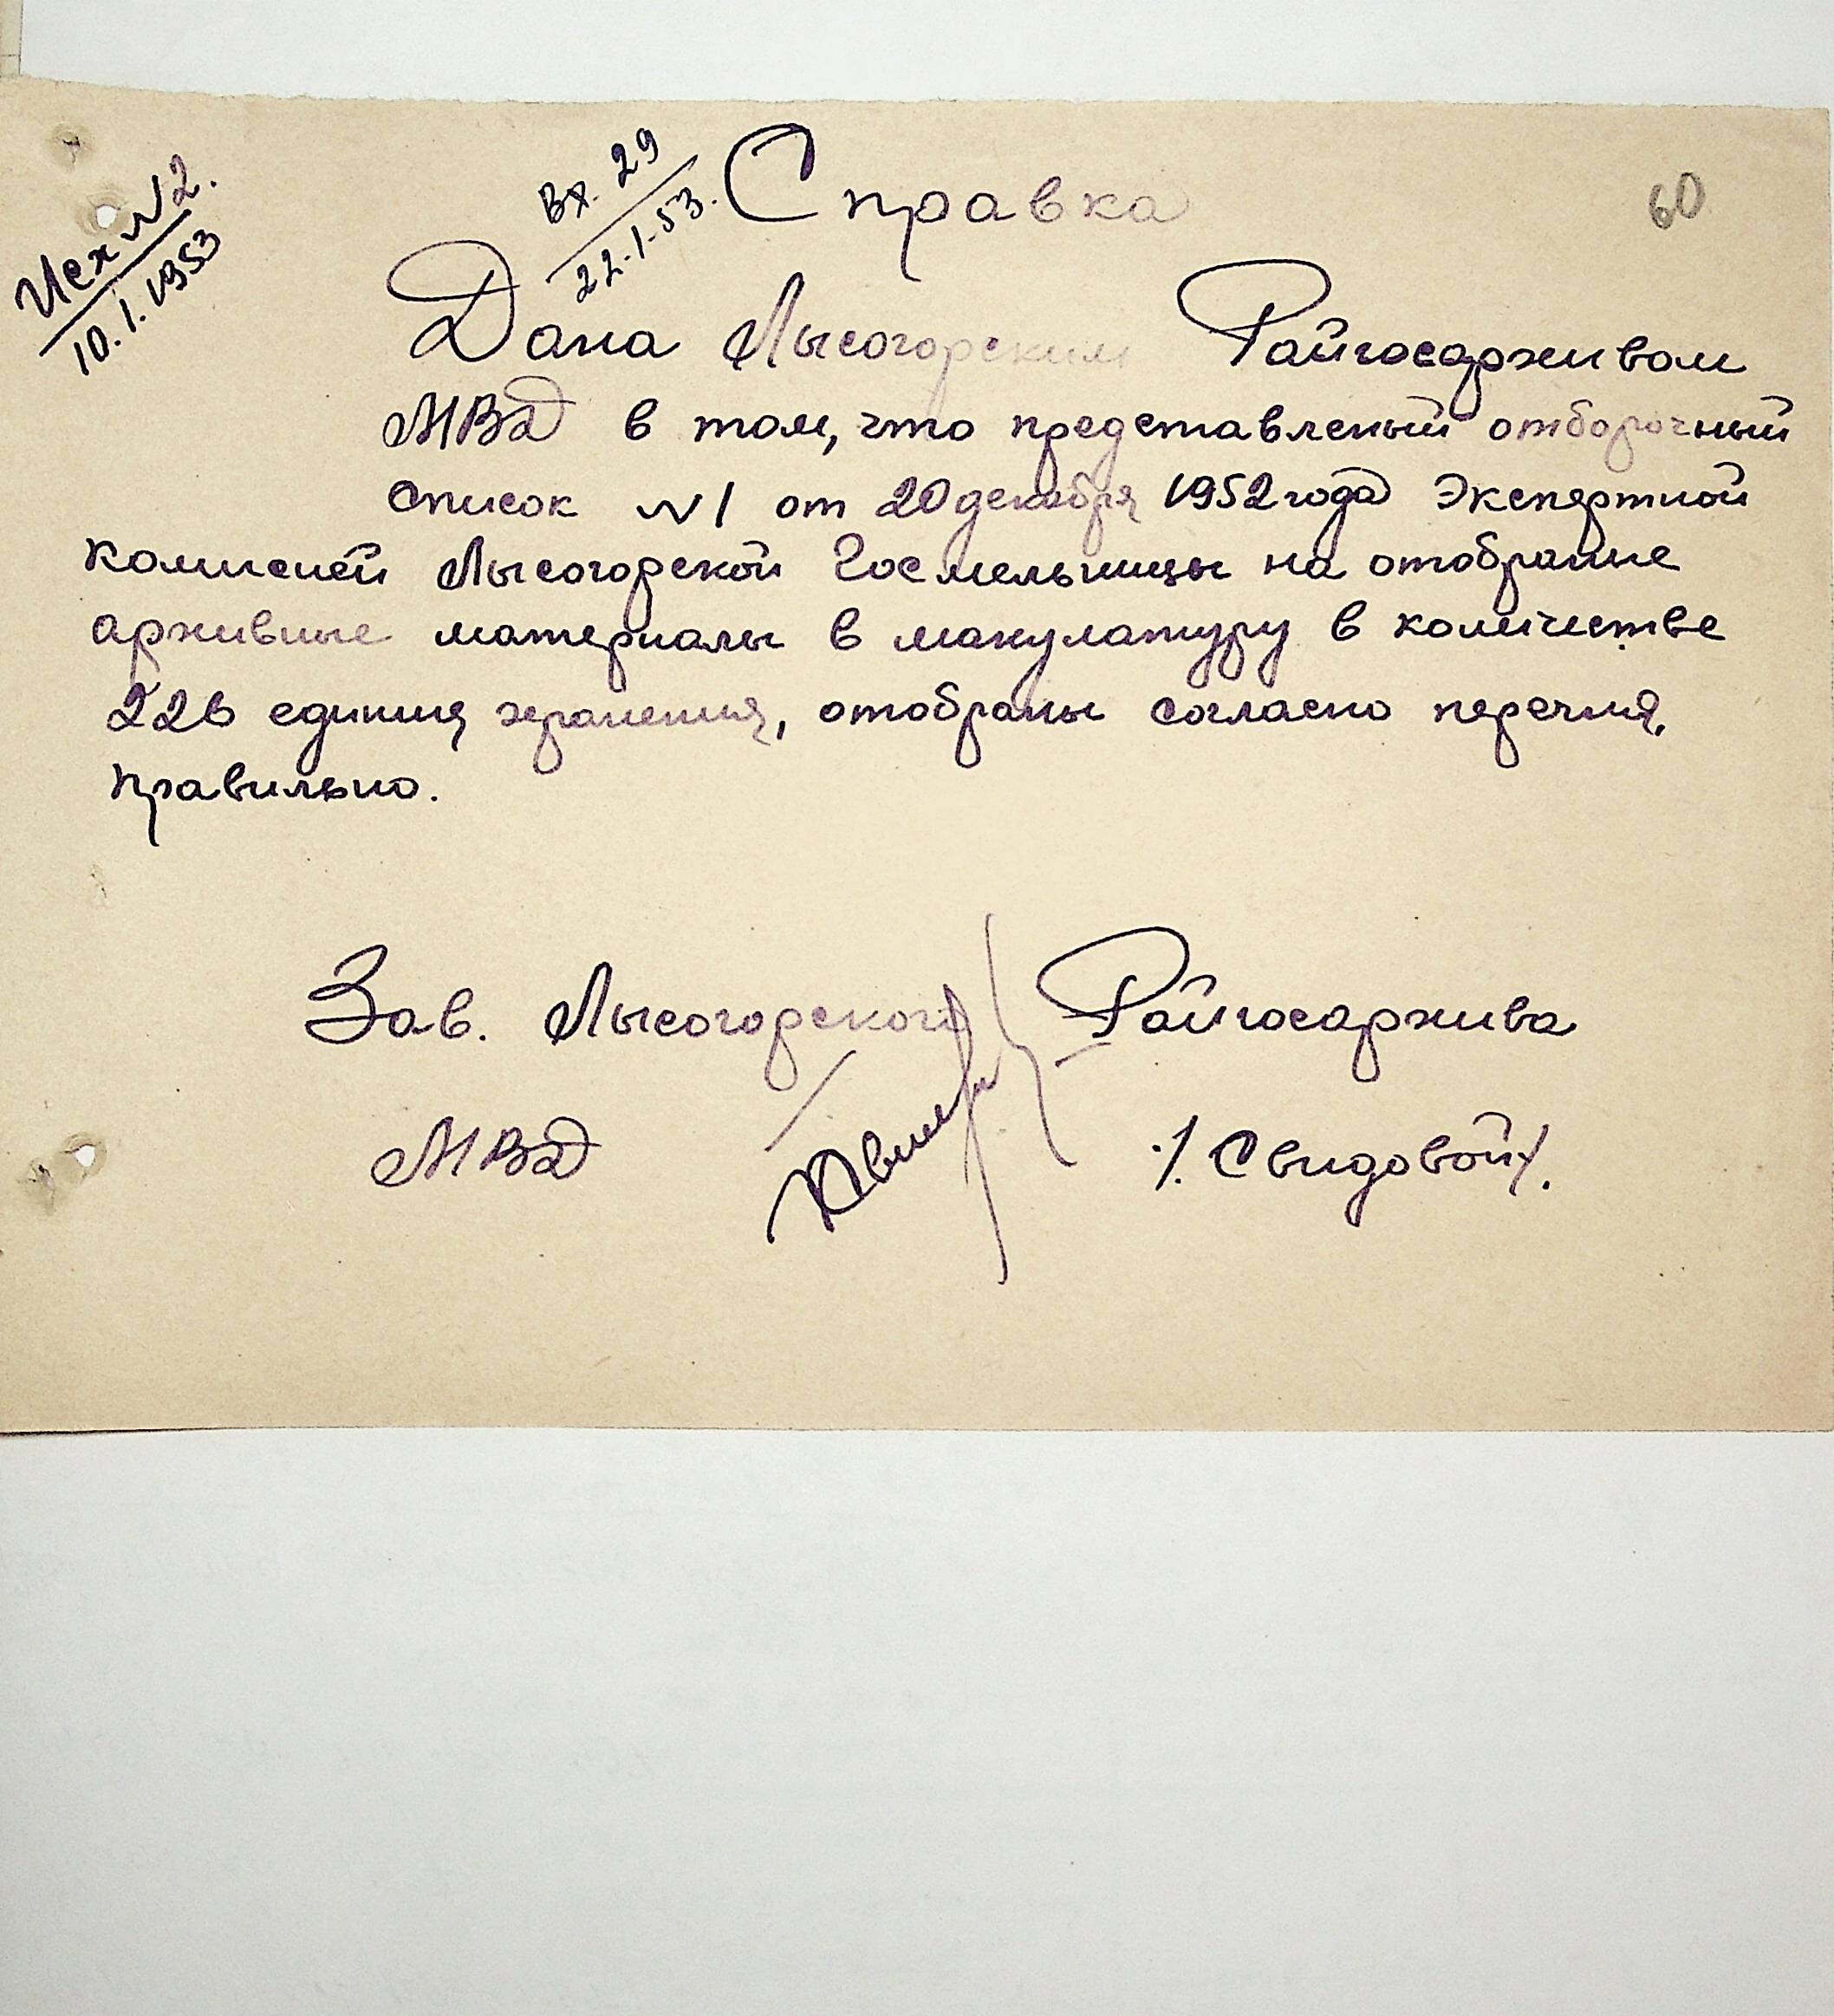 Исх № 2.
10.1.1953
Вх. 29
22-1-53.
60
Справка
Дана Лысогорским Райгосархивом
МВД в том, что представленый отборочный
список №1 от 20 декабря 1952 года Экспертной
комисией Лысогорской Госмельницы на отобраные
архивные материалы в макулатуру в количестве
226 единиц хранения, отобраны согласно перечня,
правильно.
Зав. Лысогорского Райгосархива
МВД /. Свидовой/.